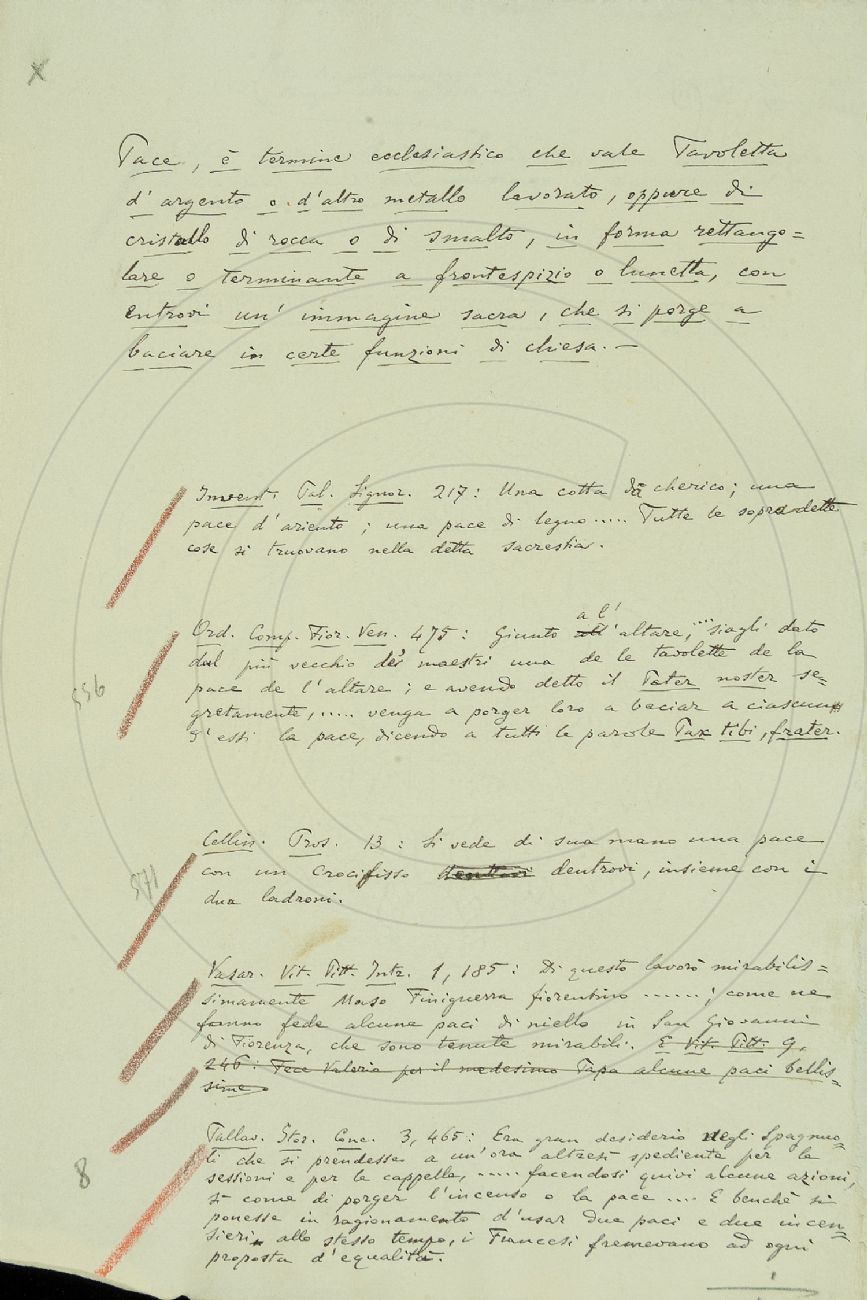 x
Pace, è termine ecclesiastico che vale Tavoletta
d'argento o d'altro metallo lavorato, oppure di
cristallo di rocca o di smalto, in forma rettango=
lare o terminante a frontespizio o lunetta, con
entrovi un' immagine sacra, che si porge a
baciare in certe funzioni di chiesa. —
Invent. Pal. Signor. 217: Una cotta da cherico; una
pace d'ariento; una pace di legno ..... Tutte le sopradette
cose si truovano nella detta sacrestia.
a l'
Ord. Comp. Fior. Ven. 475: Giunto al' altare, .... siagli dato
dal più vecchio de' maestri una de le tavolette de la
556
pace de l'altare; e avendo detto il Pater noster se=
gretamente, ..... venga a porger loro a baciar a ciascuno
d'essi la pace, dicendo a tutti le parole Pax tibi, frater.
Cellin. Pros. 13: Si vede di sua mano una pace
con un Crocifisso dentrovi dentrovi, insieme con i
571
dua ladroni.
Vasar. Vit. Pitt. Intr. 1, 185: Di questo lavorò mirabilis=
simamente Maso Finiguerra fiorentino ......; come ne
fanno fede alcune paci di niello in San Giovanni
di Fiorenza, che sono tenute mirabili. E Vit. Pitt. 9,
246: Fece Valerio per il medesimo Papa alcune paci bellis=
sime
Pallav. Stor. Conc. 3, 465: Era gran desiderio negli Spagnuo=
li che si prendesse a un'ora altresì spediente per le
8
sessioni e per le cappelle, ..... facendosi quivi alcune azioni,
sì come di porger l'incenso o la pace .... E benchè si
ponesse in ragionamento d'usar due paci e due incen=
sieri allo stesso tempo, i Francesi fremevano ad ogni
proposta d'equalità.